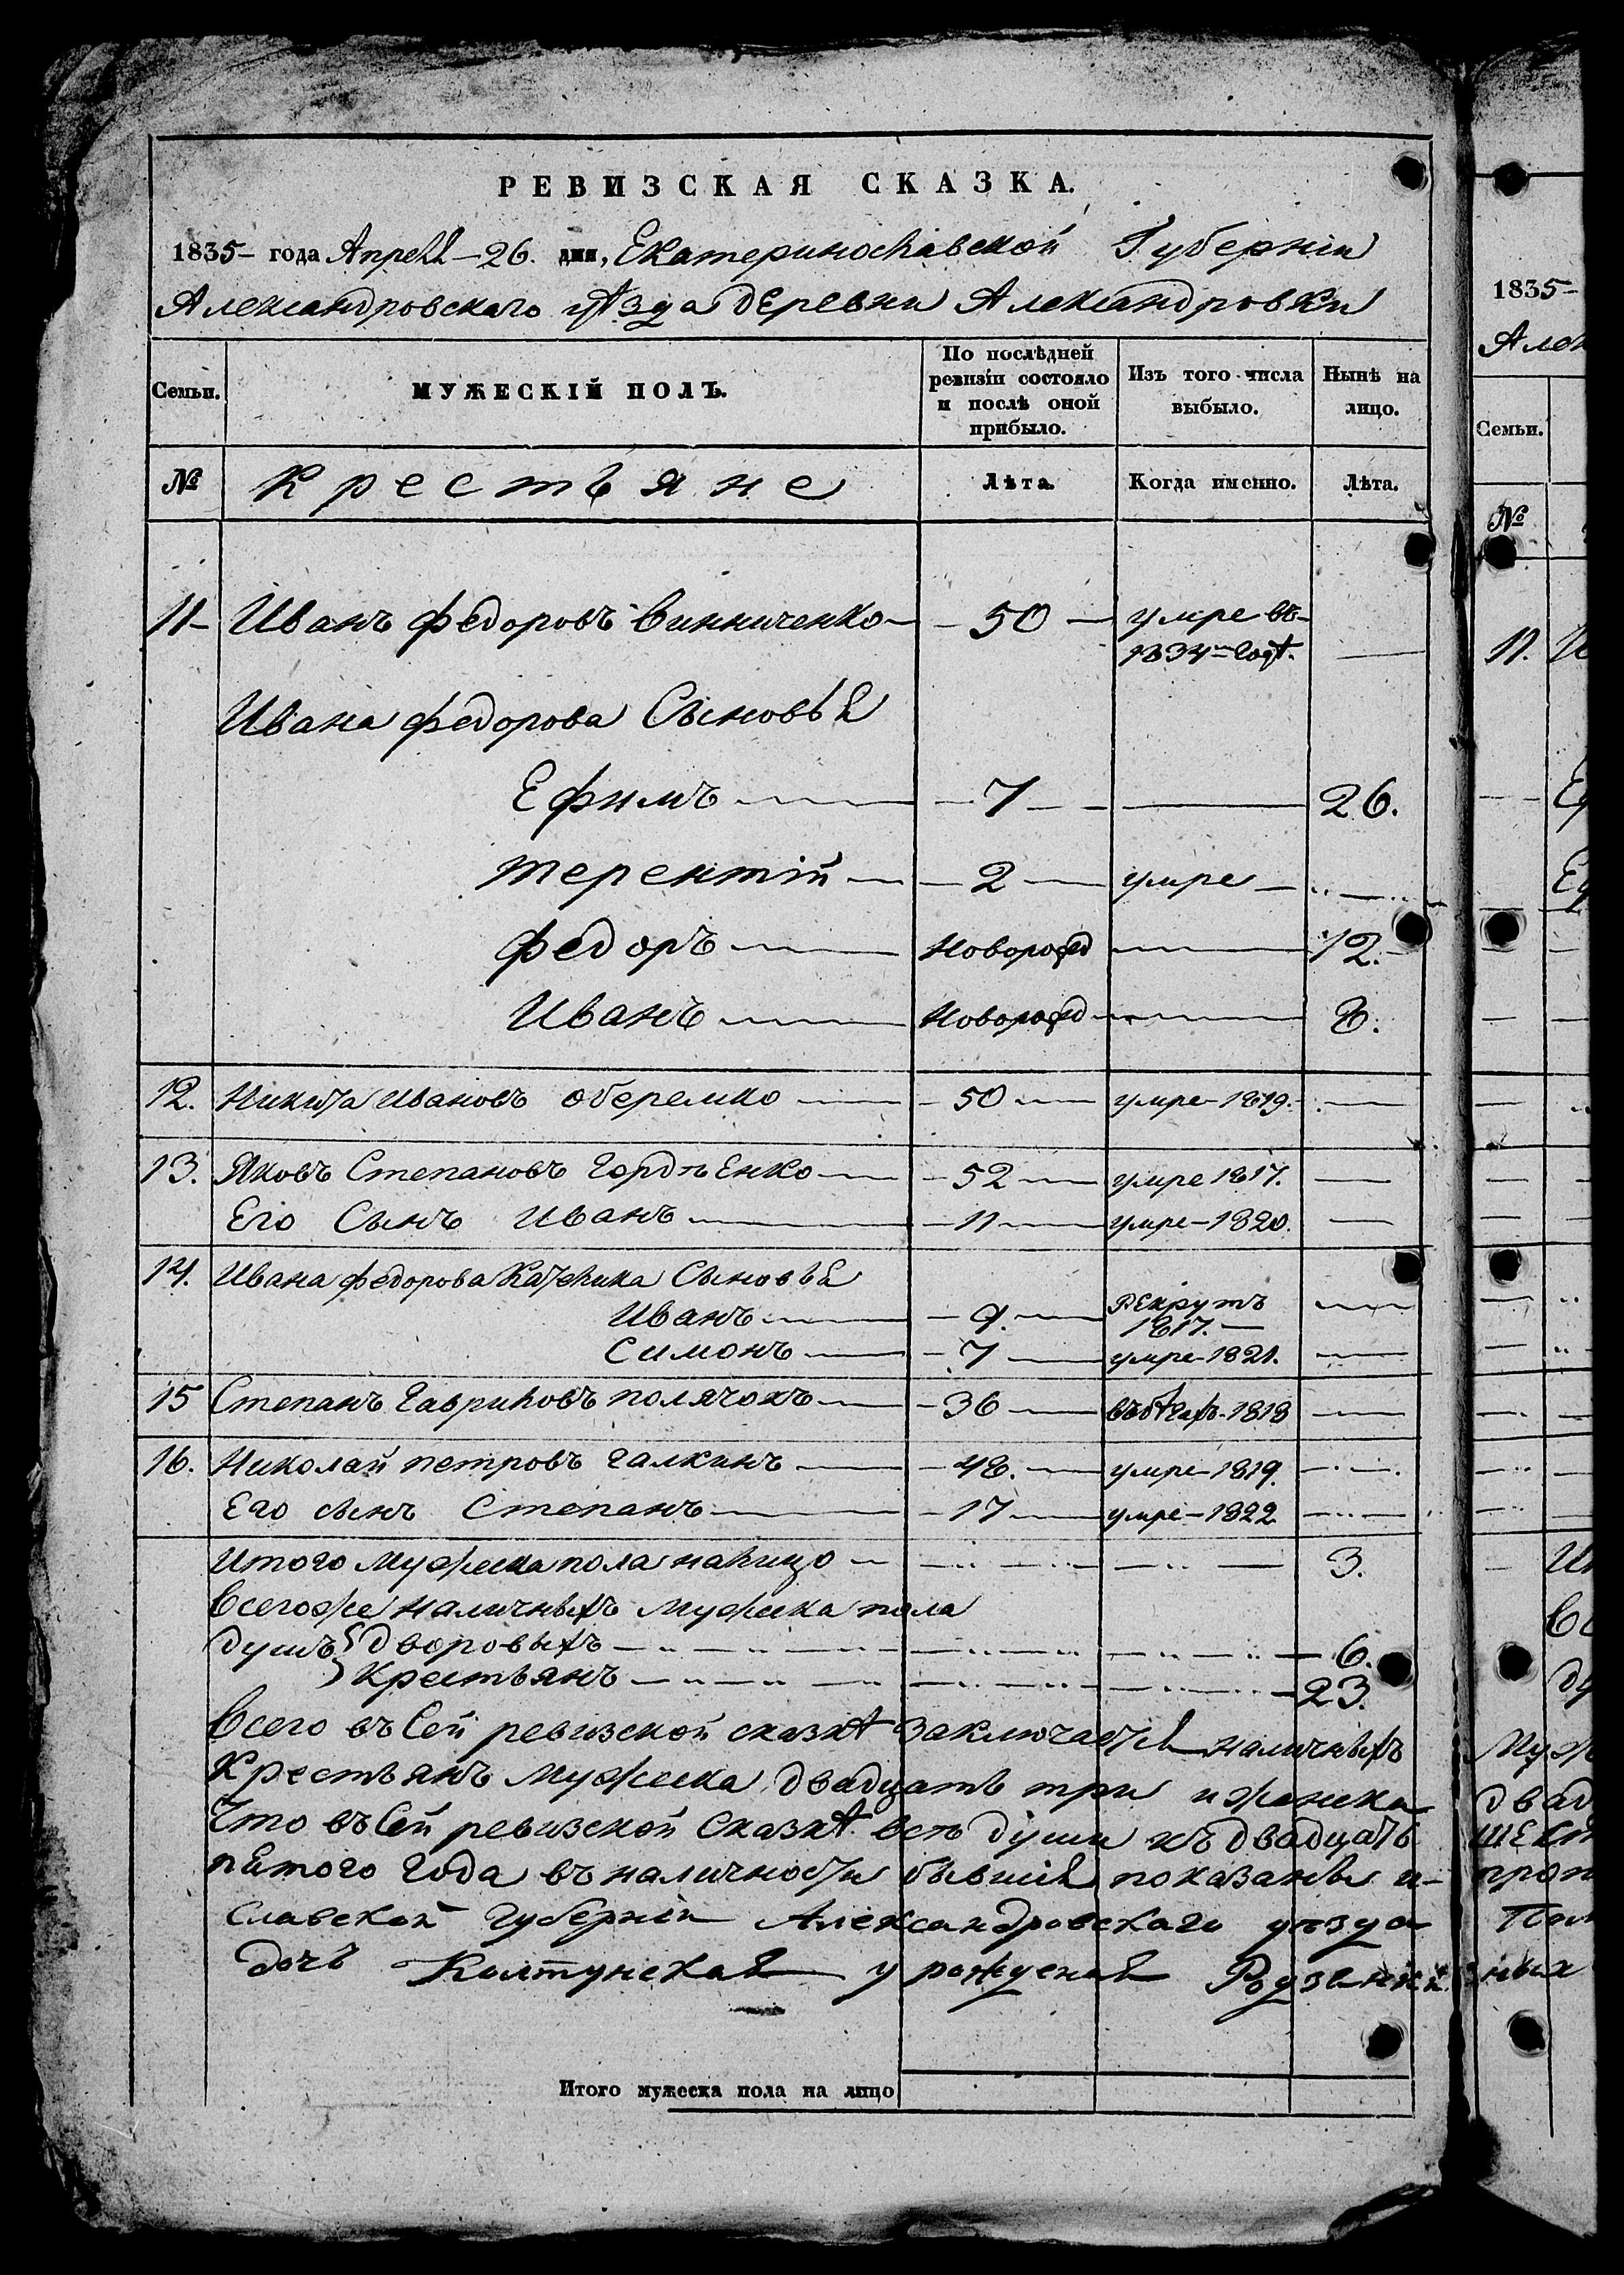 РЕВИЗСКАЯ СКАЗКА.
1835- года Апреля - 26. дня, Екатеринославской Губерніи
Александровскаго уѣзда деревни Александровки
Семьи. МУЖЕСКІЙ ПОЛЪ. По послѣдней ревизіи состояло и послѣ оной прибыло. Изъ того числа выбыло. Нынѣ на лицо.
№ Крестьяне Лѣта. Когда именно. Лѣта.
11- Иванъ Федоровъ Винниченко - 50 - умре въ-
1834-м годѣ. —
Ивана Федорова Сыновья
Ефимъ — 7 — — 26.
Терентій — 2 — умре —
Федоръ — Новорожд — 12.
Иванъ — Новорожд — 8.
12. Никита Ивановъ Оберемко — 50 — умре - 1819. —
13. Яковъ Степановъ Гордѣенко — 52 — умре 1817. —
Его Сынъ Иванъ — 11 — умре - 1820. —
14. Ивана Федорова Сыновья
Иванъ — 9. — Рекрутъ —
1817. —
Симонъ — 7 — умре - 1821. —
15 Степанъ Гавриловъ Полячокъ — 36 — въ бѣгахъ - 1818 —
16. Николай Петровъ Галкинъ — 48. — умре - 1819. —
Его сынъ Степанъ — 17 — умре - 1822 —
Итого Мужеска пола налицо — 3.
Всегоже наличныхъ Мужеска пола
душъ { Дворовыхъ — 6.
Крестьянъ — 23.
Всего въ Сей ревизской сказкѣ Заключается наличныхъ
Крестьянъ Мужеска двадцать три и женска
Что въ Сей ревизской Сказкѣ всѣ души къ двадцать
пятого Года въ наличности бывшія показаны и-
славской Губерніи Александровскаго уѣзда
дочь Колтунская урожденая
Итого мужеска пола на лицо
1835-
Алек
Семьи.
№
11.